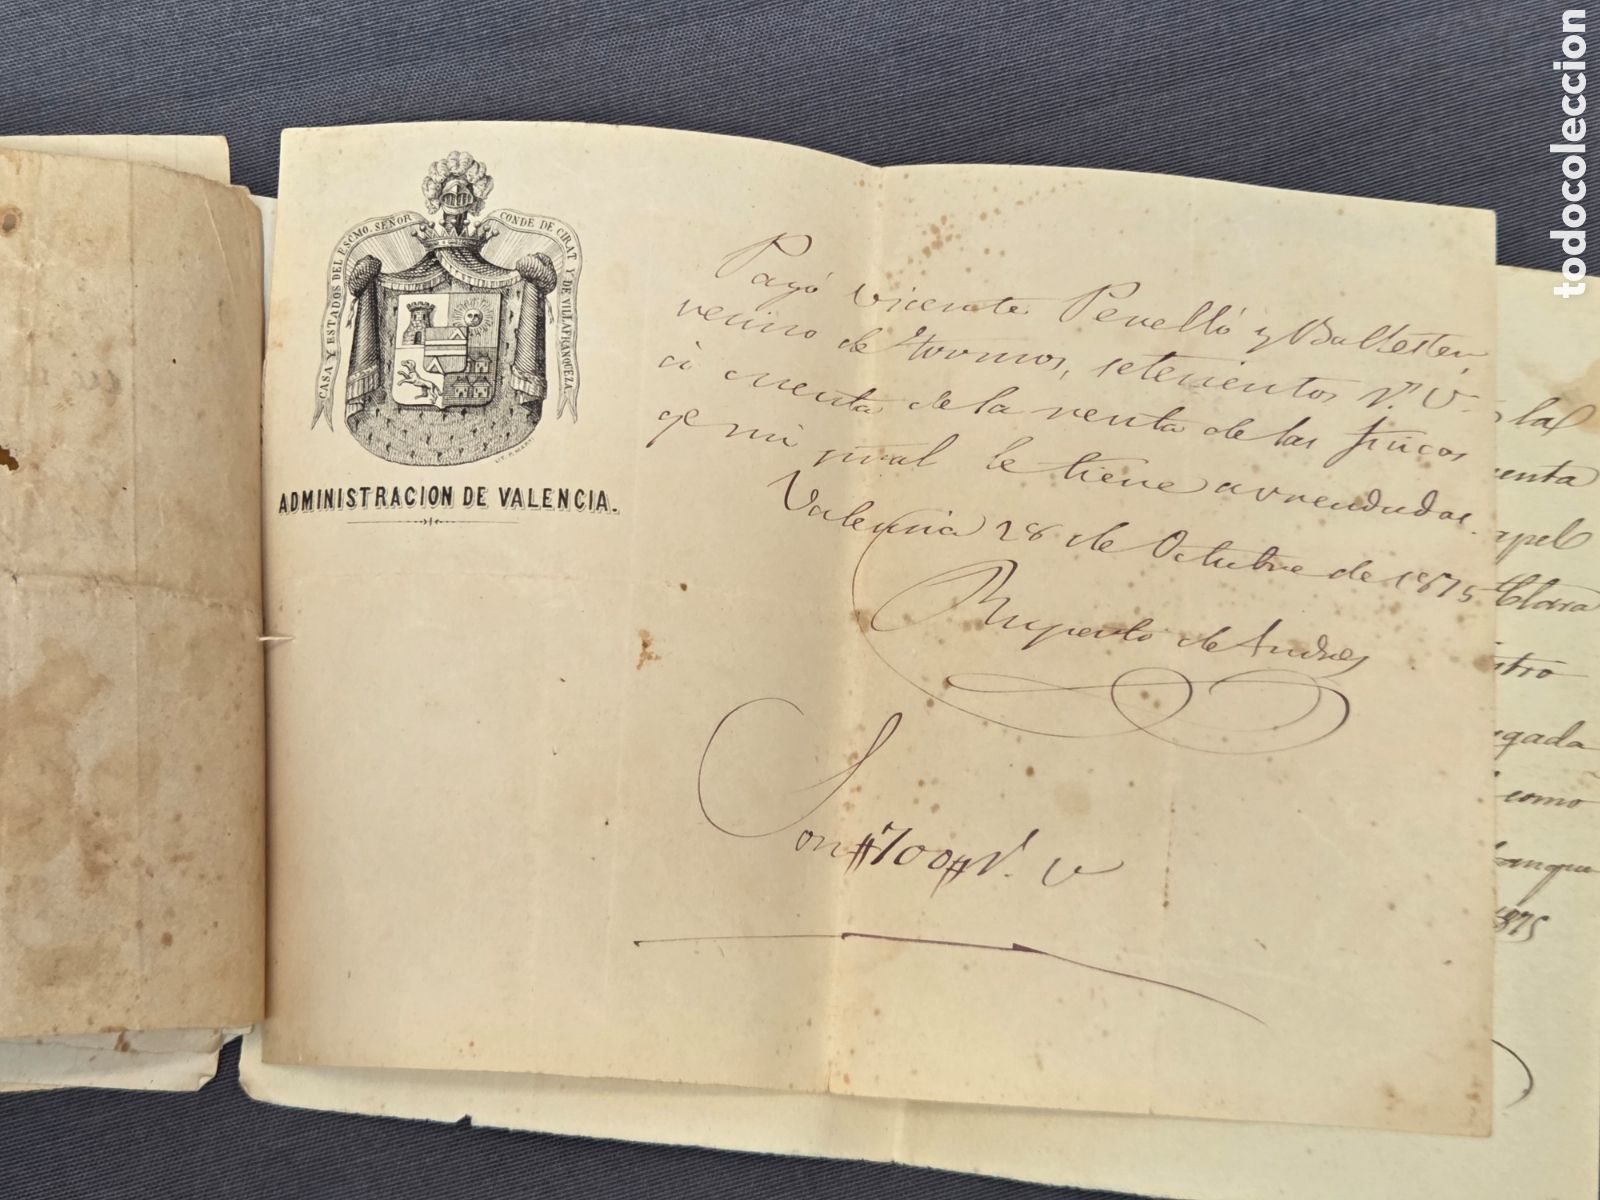 CASA Y ESTADOS DEL ESCMO. SEÑOR CONDE DE CIRAT Y DE VILLAFRANQUEZA
ADMINISTRACION DE VALENCIA.
Pagó Vicente Perelló y Ballester,
vecino de Tormos, setecientos r.s V.
á cuenta de la renta de las fincas
qe mi pral le tiene arrendadas.
Valencia 28 de Octubre de 1875
Ruperto de Andres
Son #700# r.s V
las
cuenta
apel
Clara
gada
como
1875
todocoleccion